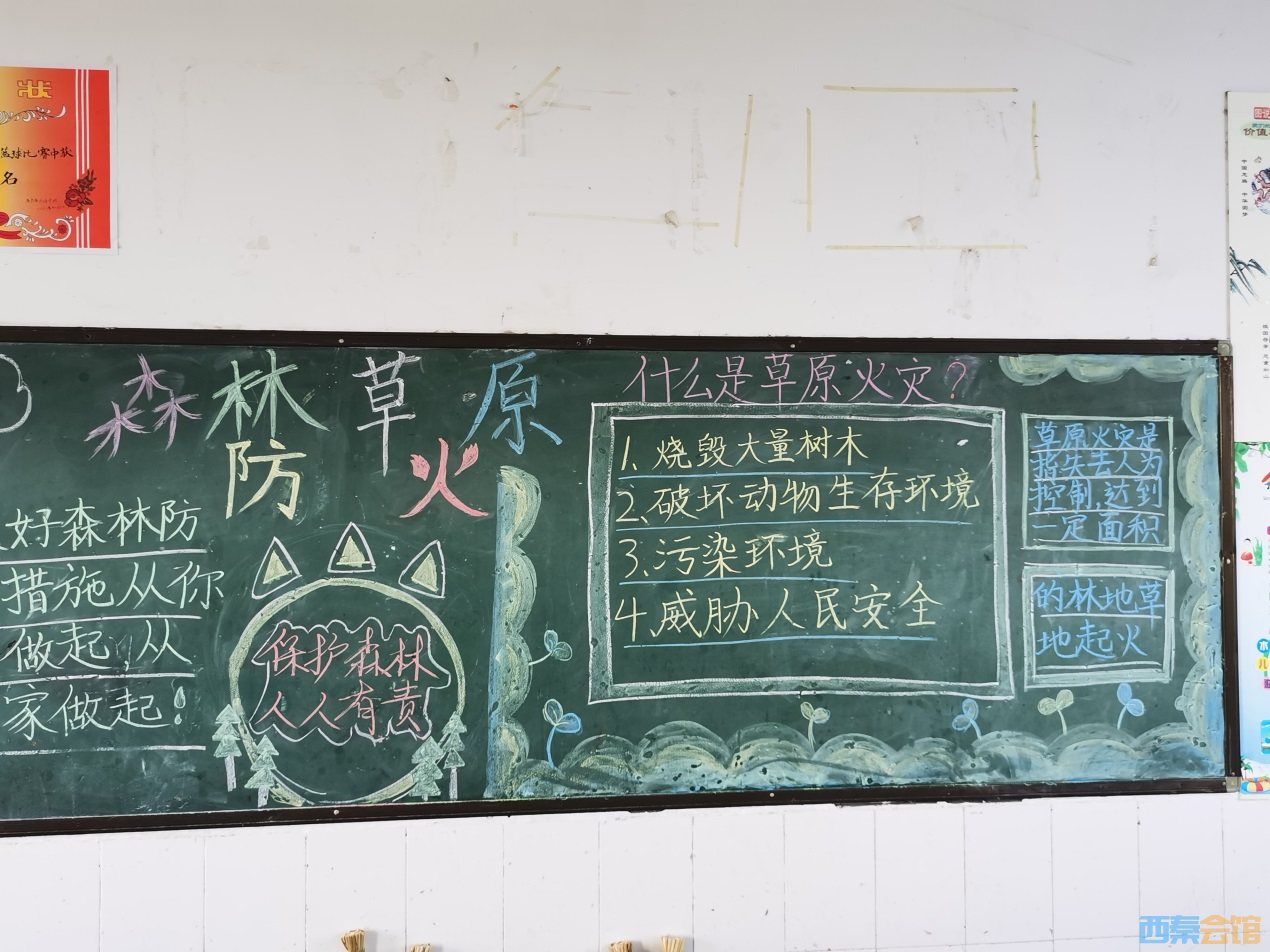 状
篮球比赛中获
名
森林草原
防火
好森林防
措施从你
做起,从
家做起!
保护森林
人人有责
什么是草原火灾?
1、烧毁大量树木
2、破坏动物生存环境
3、污染环境
4、威胁人民安全
草原火灾是
指失去人为
控制,达到
一定面积
的林地草
地起火
价值
西秦会馆